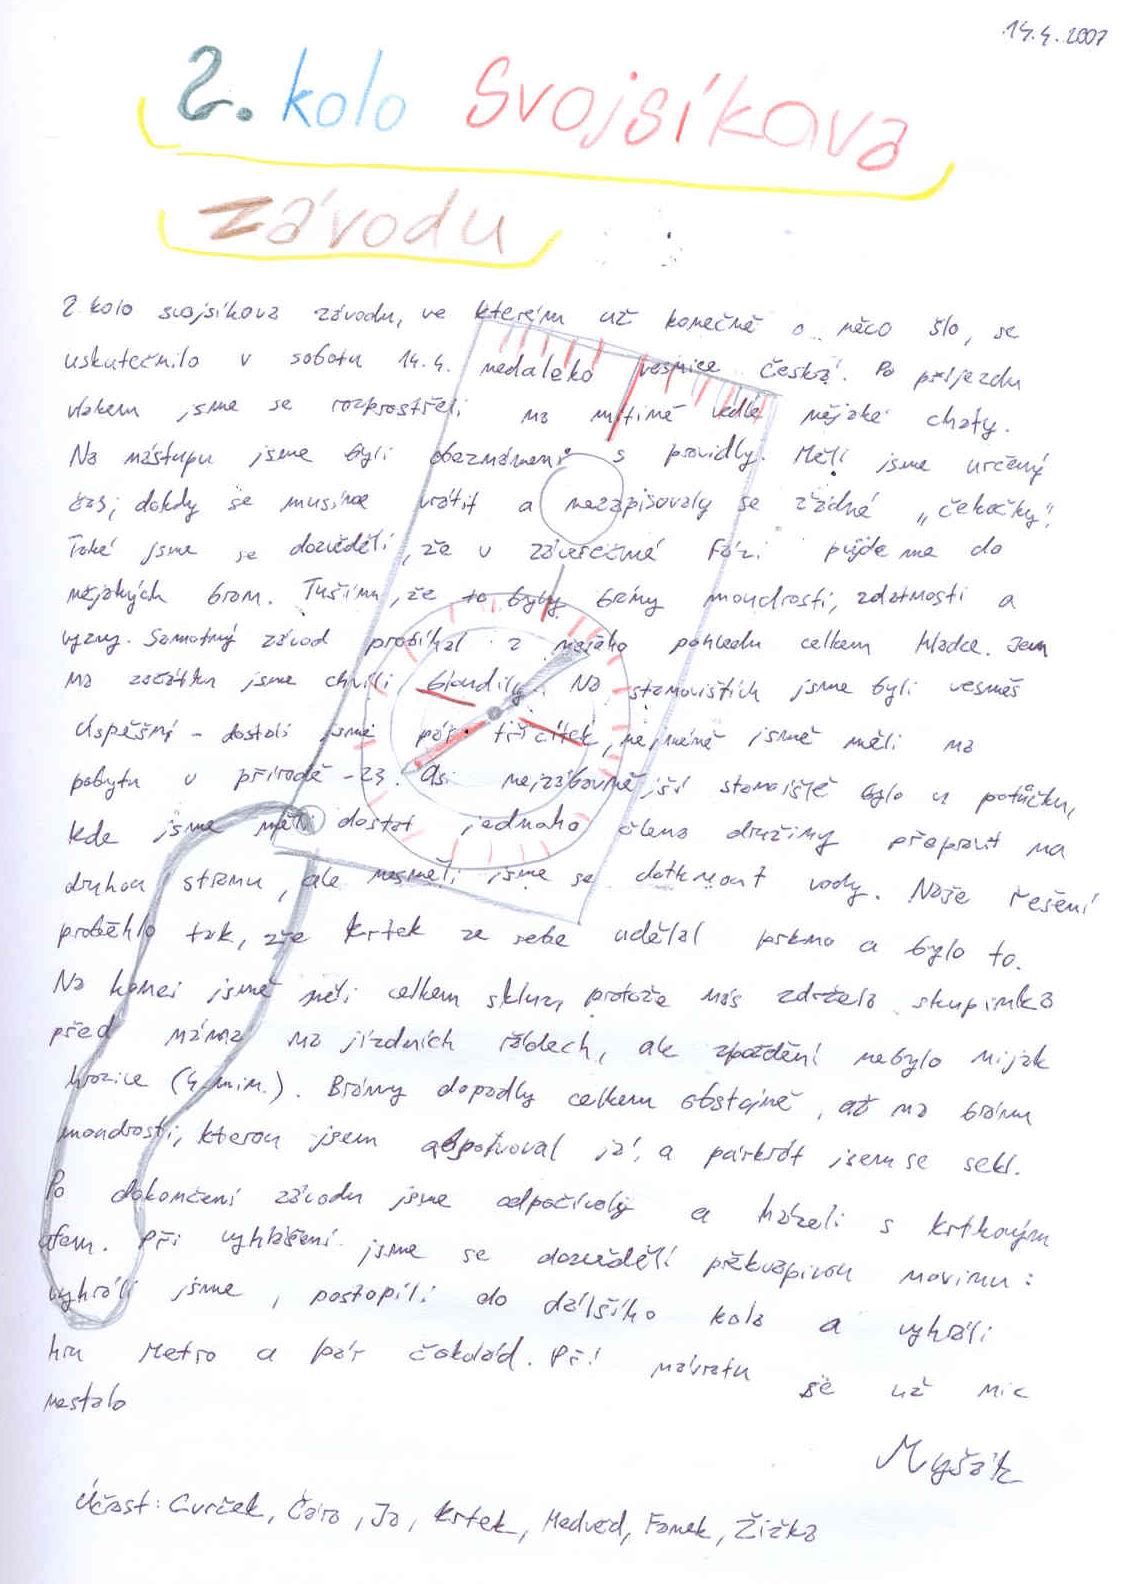 14.4.2007
2. kolo Svojsíkova
závodu
2. kolo svojsíkova závodu, ve kterém už konečně o něco šlo, se
uskutečnilo v sobotu 14.4. nedaleko vesnice Česká. Po příjezdu
vlakem jsme se rozprostřeli na mítině vedle nějaké chaty.
Na nástupu jsme byli obeznámeni s pravidly. Měli jsme určený
čas, dokdy se musíme vrátit a nezapisovaly se žádné „čekačky".
Také jsme se dozvěděli, že v závěrečné fázi půjdeme do
nějakých bran. Tuším, že to byly brány moudrosti, zdatnosti a
výzvy. Samotný závod probíhal z mého pohledu celkem hladce. Jen
na začátku jsme chvíli bloudily. Na stanovištích jsme byli vesměs
úspěšní - dostali jsme pár třicítek, nejméně jsme měli na
pobytu v přírodě - 23. Asi nejzábavnější stanoviště bylo u potůčku,
kde jsme měli dostat jednoho člena družiny přepravit na
druhou stranu, ale nesměli jsme se dotknout vody. Naše řešení
proběhlo tak, že Krtek ze sebe udělal prkno a bylo to.
Na konci jsme měli celkem skluz, protože nás zdržela skupinka
před náma na jízdních řádech, ale zpoždění nebylo nijak
hrozice (4 min.). Brány dopadly celkem obstojně, až na bránu
moudrosti, kterou jsem absolvoval já, a párkrát jsem se sekl.
Po dokončení závodu jsme odpočívaly a házeli s krtkovým
ufem. Při vyhlášení jsme se dozvěděli překvapivou novinu:
vyhráli jsme, postoupili do dalšího kola a vyhráli
hru Metro a pár čokolád. Při návratu se už nic
nestalo
Myšák
Účast: Cvrček, Čára, Já, Krtek, Medvěd, Fanek, Žižka